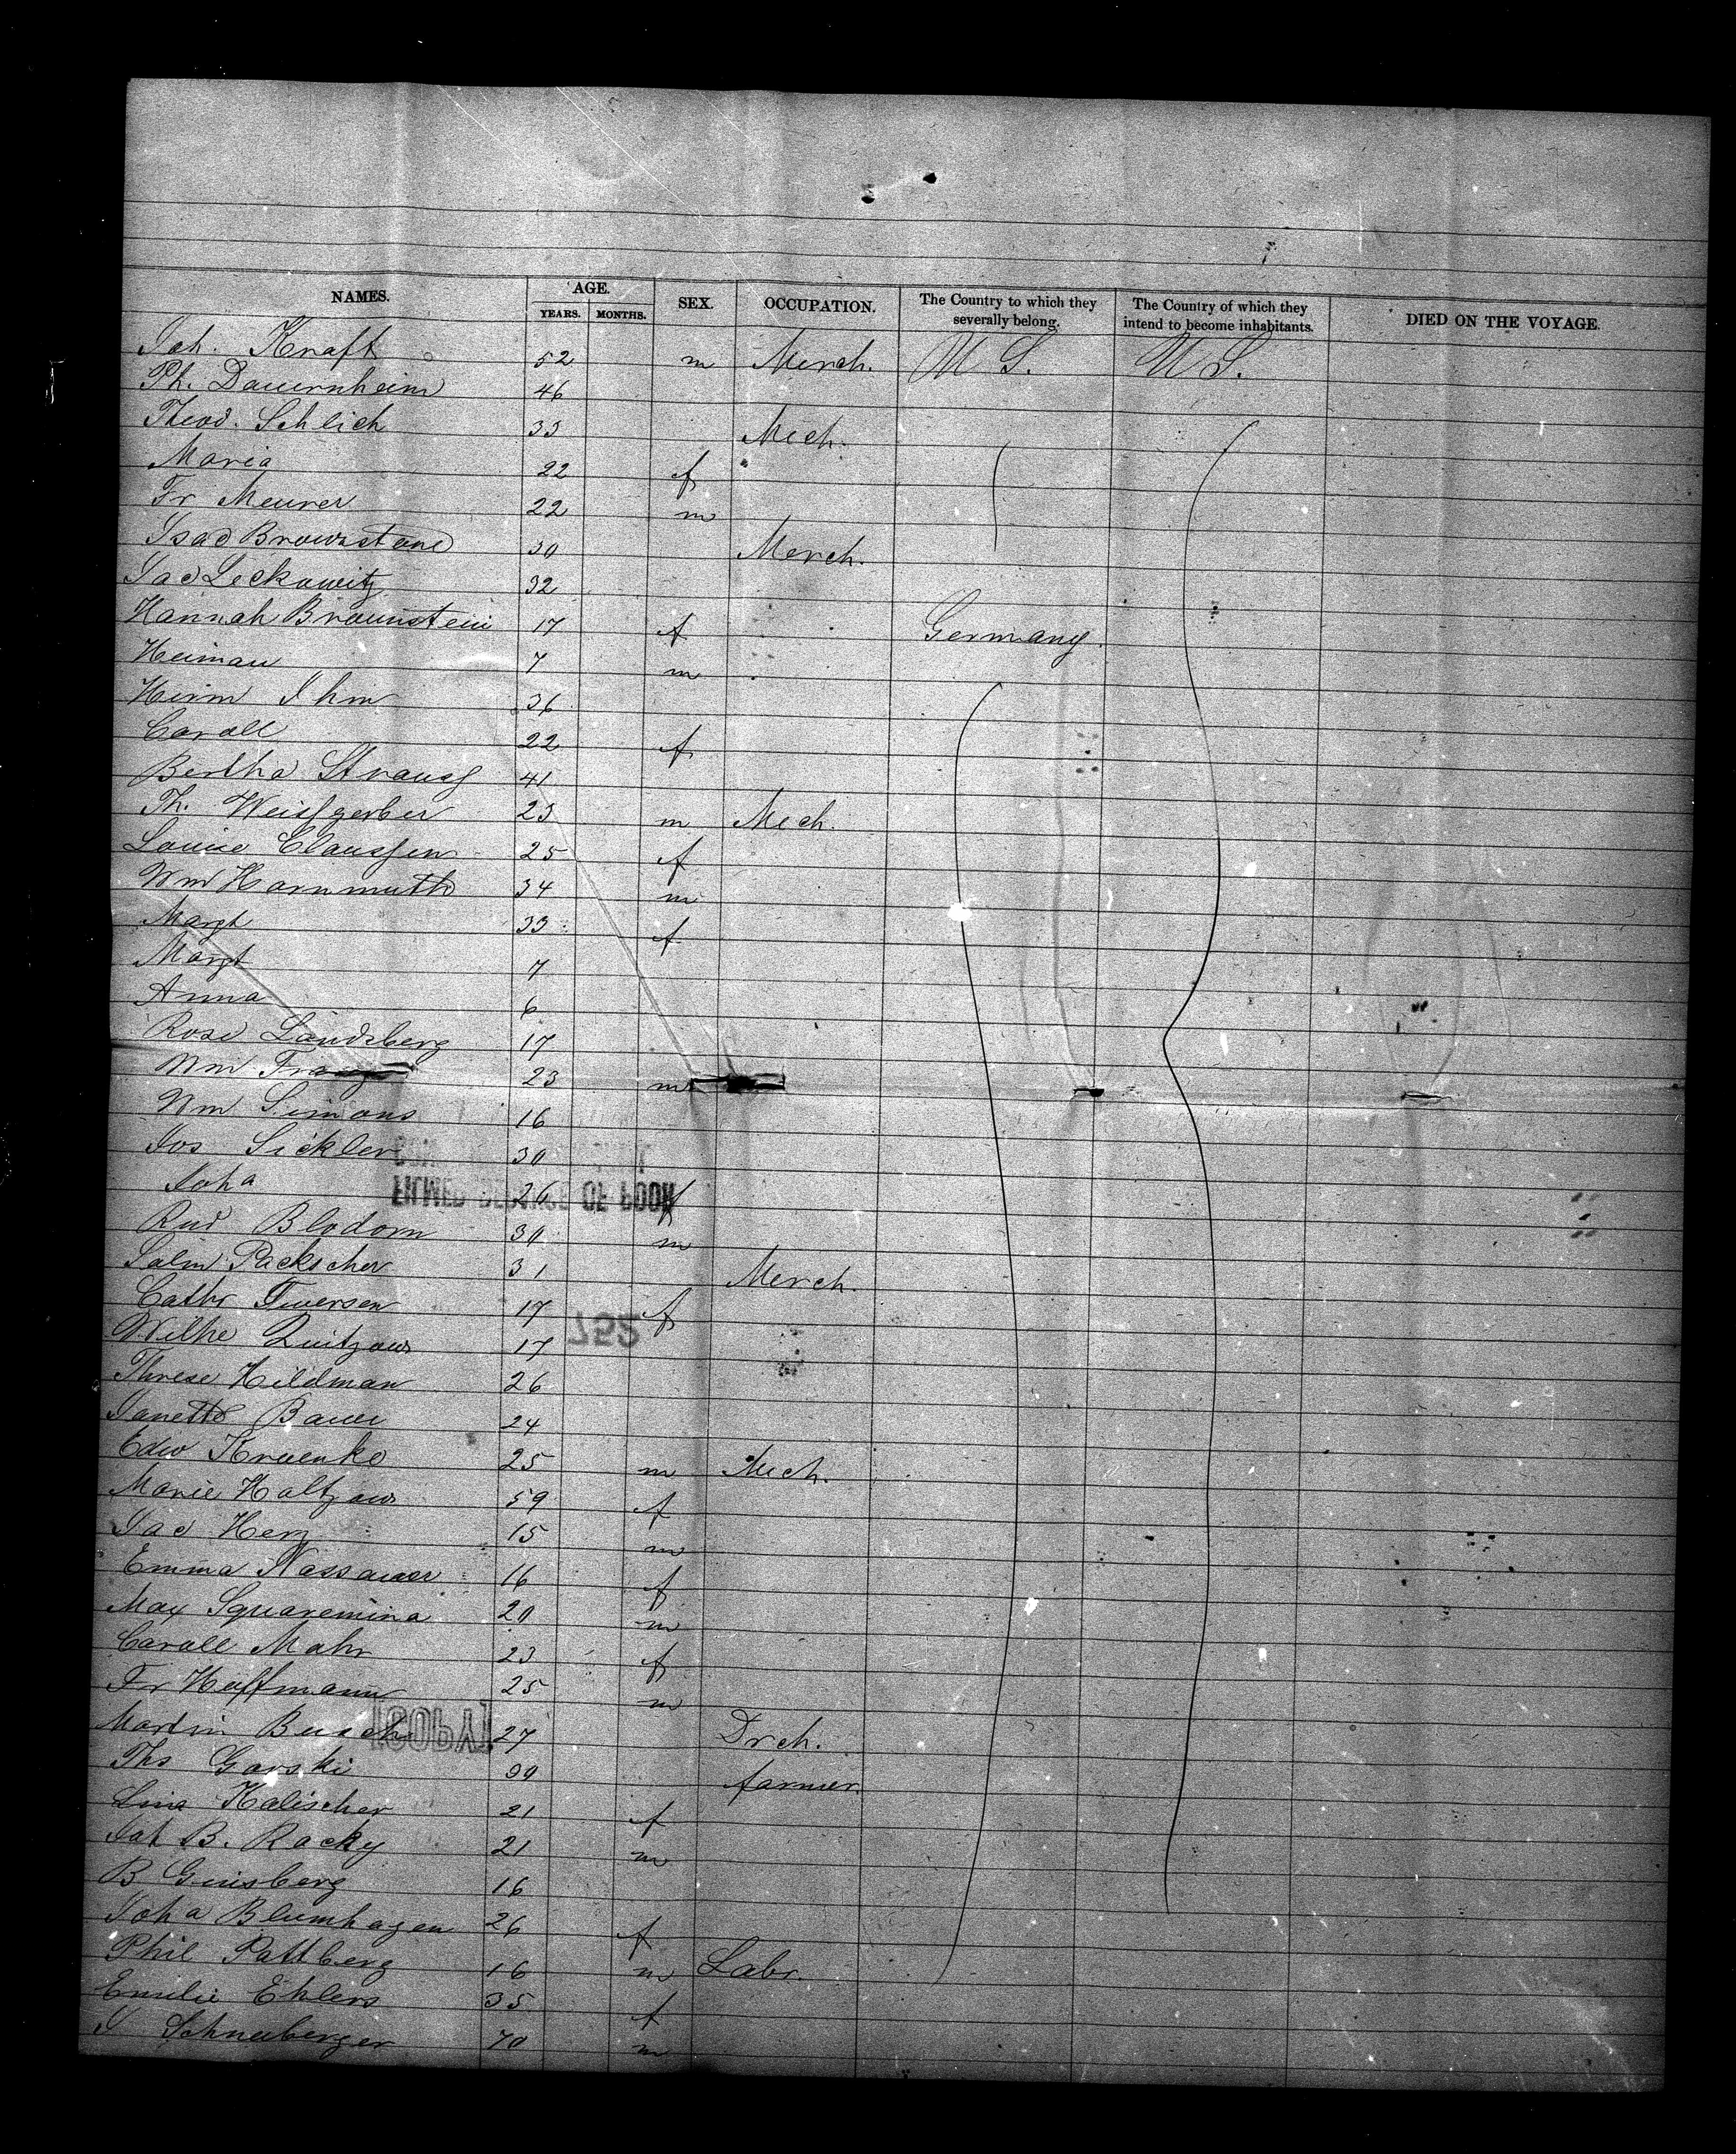 NAMES. AGE. YEARS. MONTHS. SEX. OCCUPATION. The Country to which they severally belong. The Country of which they intend to become inhabitants. DIED ON THE VOYAGE.
Joh. Kraft 52 m Merch. U S. U S.
Ph. Dauernheim 46
Theod. Schlich 33 Mech.
Maria 22 f
Fr Meurer 22 m
Isac Brownstone 30 Merch.
Jac Leckowitz 32
Hannah Braunstein 17 f Germany
Heiman 7 m
Herm Ihm 36
Caroll 22 f
Bertha Strauss 41
Th. Weissgerber 23 m Mech.
Louise Claussen 25 f
Wm Harnmuth 34 m
Margt 33 f
Margt 7
Anna 6
Rosa Landsberg 17
Wm Franz 23 m
Wm Simons 16
Jos Sickler 30
Joha 26 f
Rud Blodorn 30 m
Salm Packscher 31 Merch.
Cathr Iwersen 17 f
Wilhe Quitzow 17
Threse Hildman 26
Janette Bauer 24
Edw Kruenke 25 m Mech.
Marie Holtzow 59 f
Jac Herz 15 m
Emma Nassauer 16 f
Max Squaremina 20 m
Caroll Mahr 23 f
Fr Hoffmann 25 m
Martin Busch 27 Drch.
Ths Gorski 30 farmer
Lina Kalischer 21 f
Jah B. Racky 21 m
B Ginsberg 16
Joha Blumhagen 26 f
Phil Pattberg 16 m Labr.
Emilie Ehlers 35 f
J Schneeberger 70 m